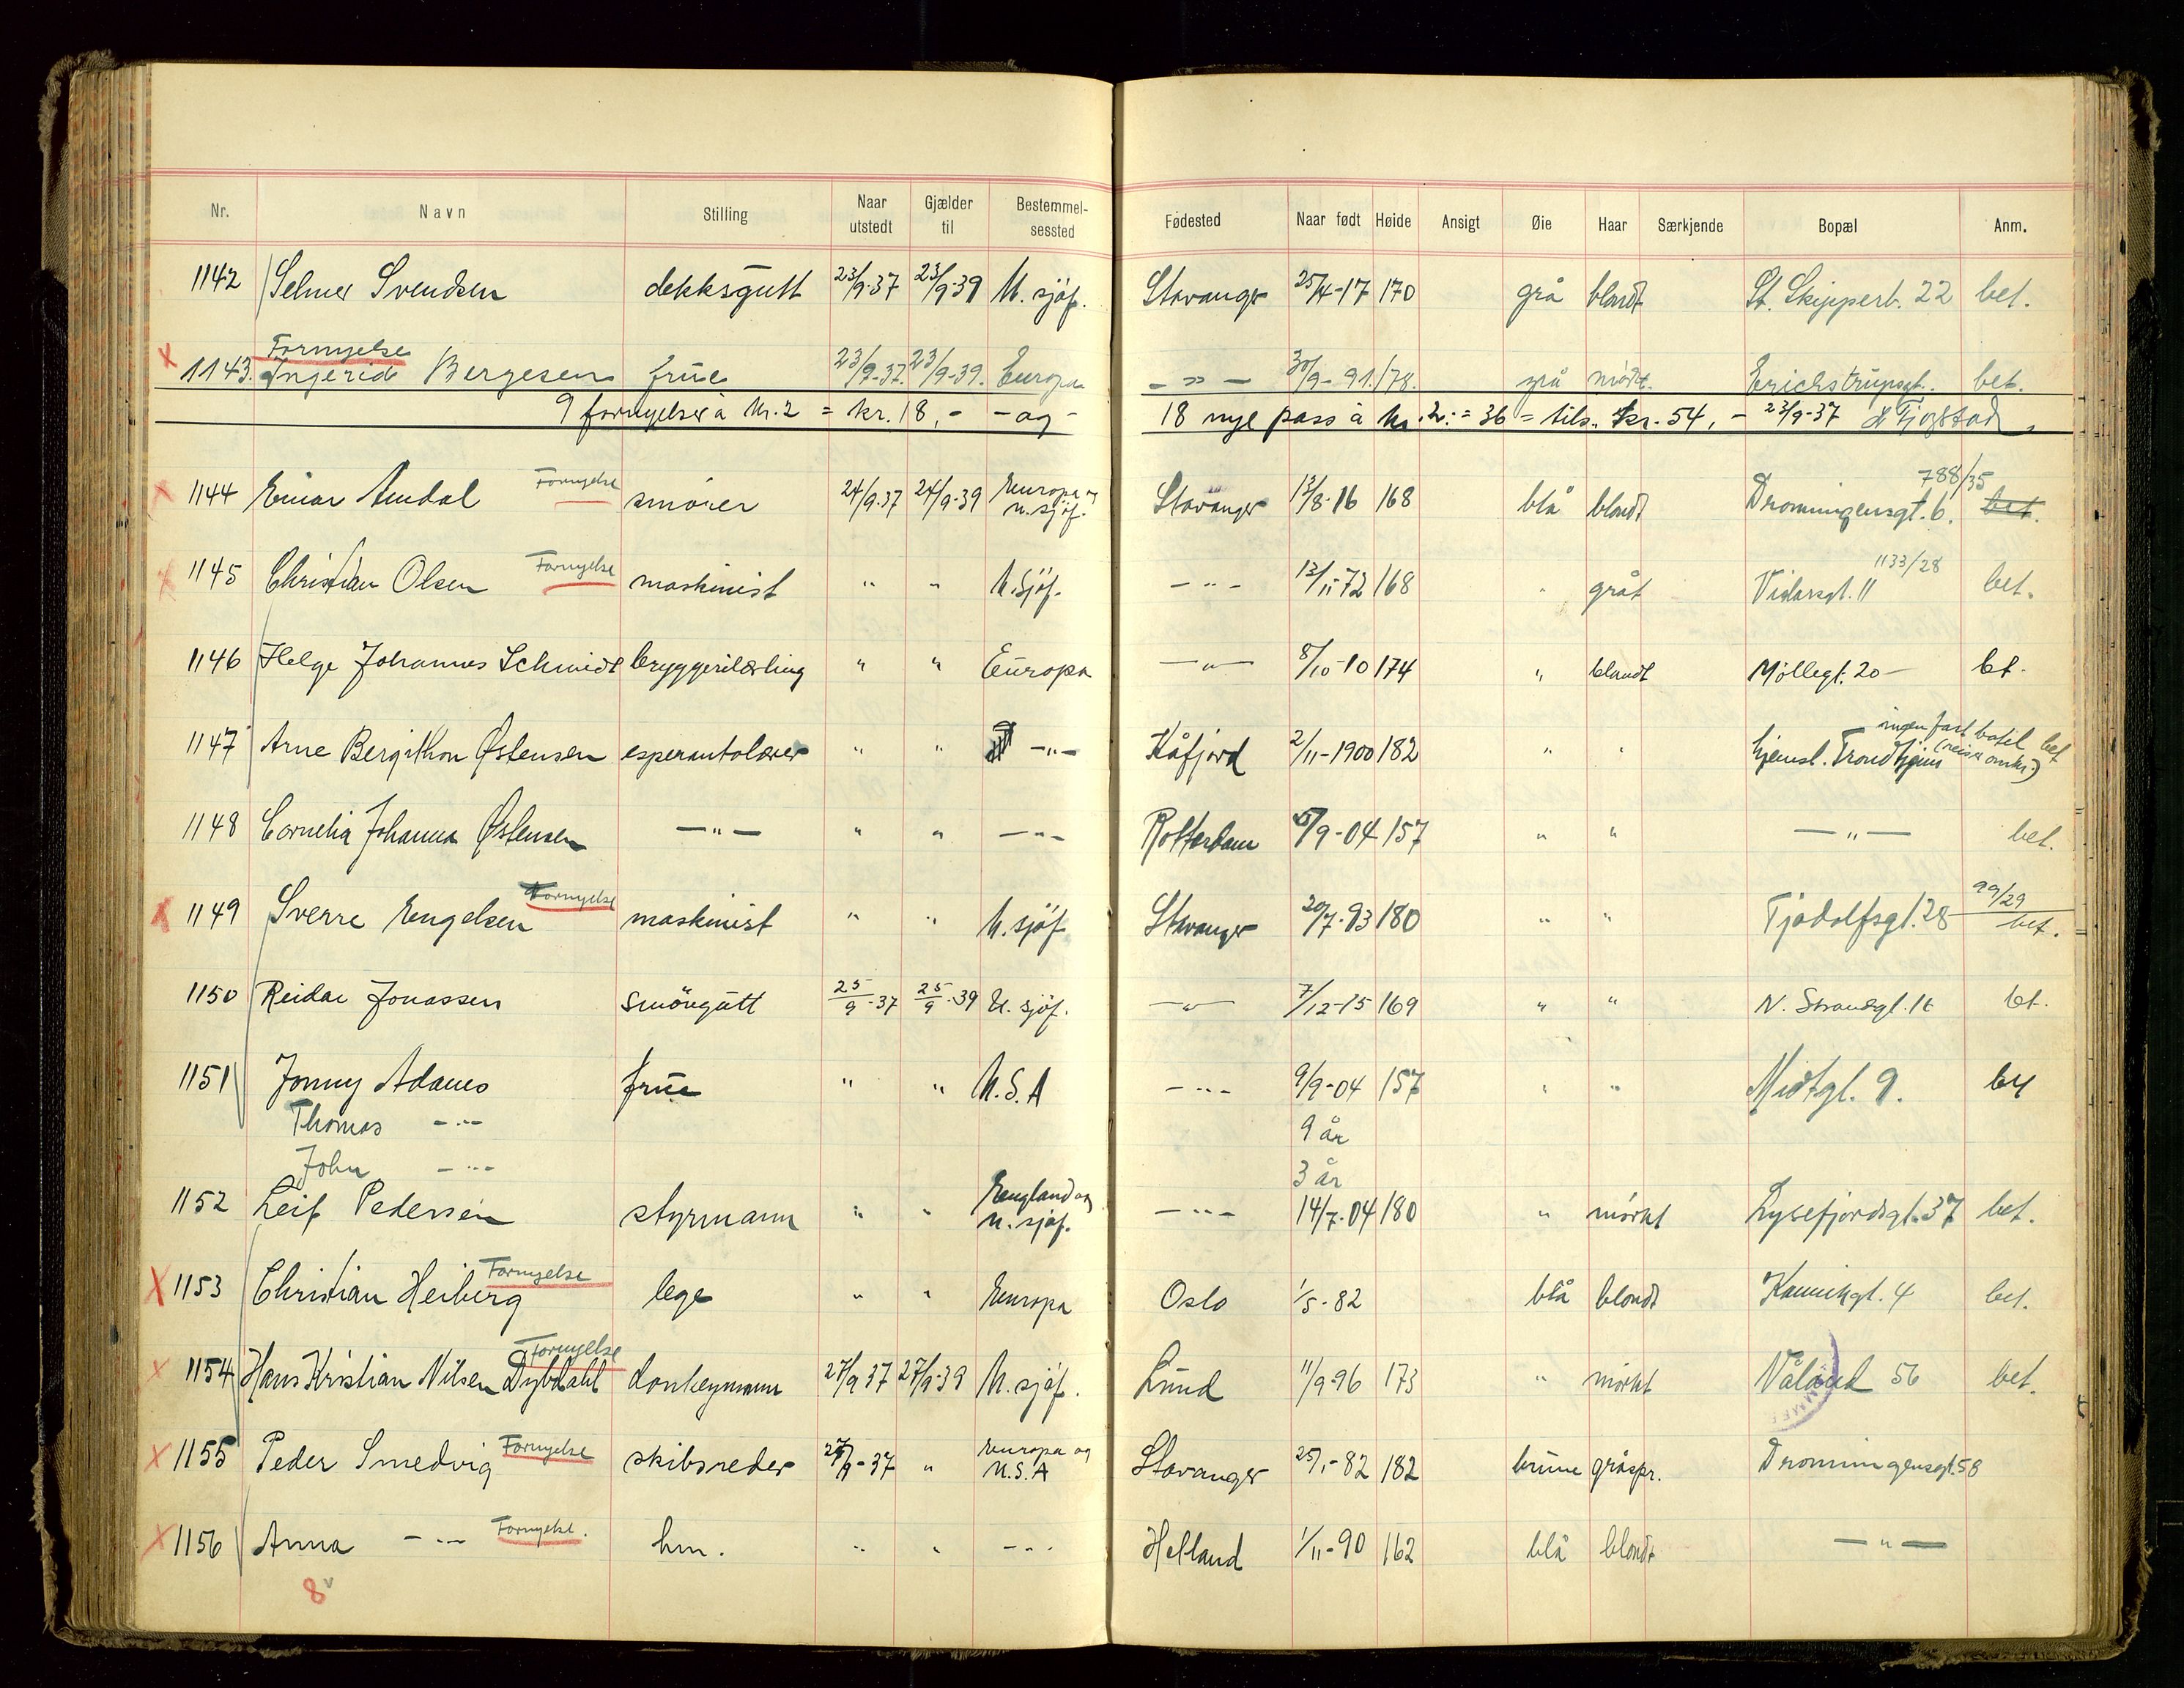 Nr. Navn Stilling Naar utstedt Gjælder til Bestemmelsessted Fødested Naar født Høide Ansigt Øie Haar Særkjende Bopæl Anm.
1142 Selmer Svendsen dekksgutt 23/9-37 23/9-39 U. sjöf. Stavanger 25/4-17 170 grå blondt St. Skipperb. 22 bet.
Fornyelse
x 1143. Ingerid Bergesen frue 23/9-37. 23/9-39. Europa - " - 30/9-91. 178. grå mörkt. Erichstrupsgt. bet.
9 fornyelser à kr. 2 = kr. 18,- - og - 18 nye pass à kr. 2: = 36 = tils. kr. 54,- 23/9-37
788/35
x 1144 Einar Amdal Fornyelse smører 24/9-37 24/9-39 Europa og u. sjöf. Stavanger 13/8-16 168 blå blondt Dronningensgt. 6. bet.
1133/28
x 1145 Christian Olsen Fornyelse maskinist " " U. sjöf. - " - 13/11-72 168 " gråt Vidarsgt. 11 bet.
1146 Helge Johannes Schmidt bryggerilærling " " Europa - " - 8/10-10 174 " blondt Møllegt. 20- bet.
1147 Arne Bergithon Østensen esperantolærer " " - " - Kåfjord 2/11-1900 182 " " hjemst. Trondhjem ingen fast bopil (reise omkr.) bet
1148 Cornelia Johanna Østensen - " - " " - " - Rotterdam /9-04 157 " " - " - bet.
99/29
x 1149 Sverre Engelsen Fornyelse maskinist " " U. sjöf. Stavanger 20/7-93 180 " " Tjodolfsgt. 28 bet.
1150 Reidar Jonassen smörgutt 25/9-37 25/9-39 U. sjöf. - " - 7/12-15 169 " " N. Strandgt. 1t bet.
1151 Jonny Adams frue " " U.S.A - " - 9/9-04 157 " " Midtgt. 9. bet
Thomas - " - 9 år
John - " - 3 år
1152 Leif Pedersen styrmann " " England og u. sjöf. - " - 14/7-04 180 " mörkt Lysefjordsgt. 37 bet.
X 1153 Christian Heiberg Fornyelse lege " " Europa Oslo 1/5-82 blå blondt Kannikgt. 4 bet.
x 1154 Hans Kristian Nilsen Dybdahl Fornyelse donkeymann 27/9-37 27/9-39 U. sjöf. Lund 11/9-96 173 " mörkt Våland 56 bet.
x 1155 Peder Smedvig Fornyelse skibsreder 27/9-37 " Europa og U.S.A Stavanger 25/1-82 182 brune gråspr. Dronningensgt. 58
x 1156 Anna - " - Fornyelse. hm. " " - " - Helland 1/11-90 162 blå blondt - " -
8